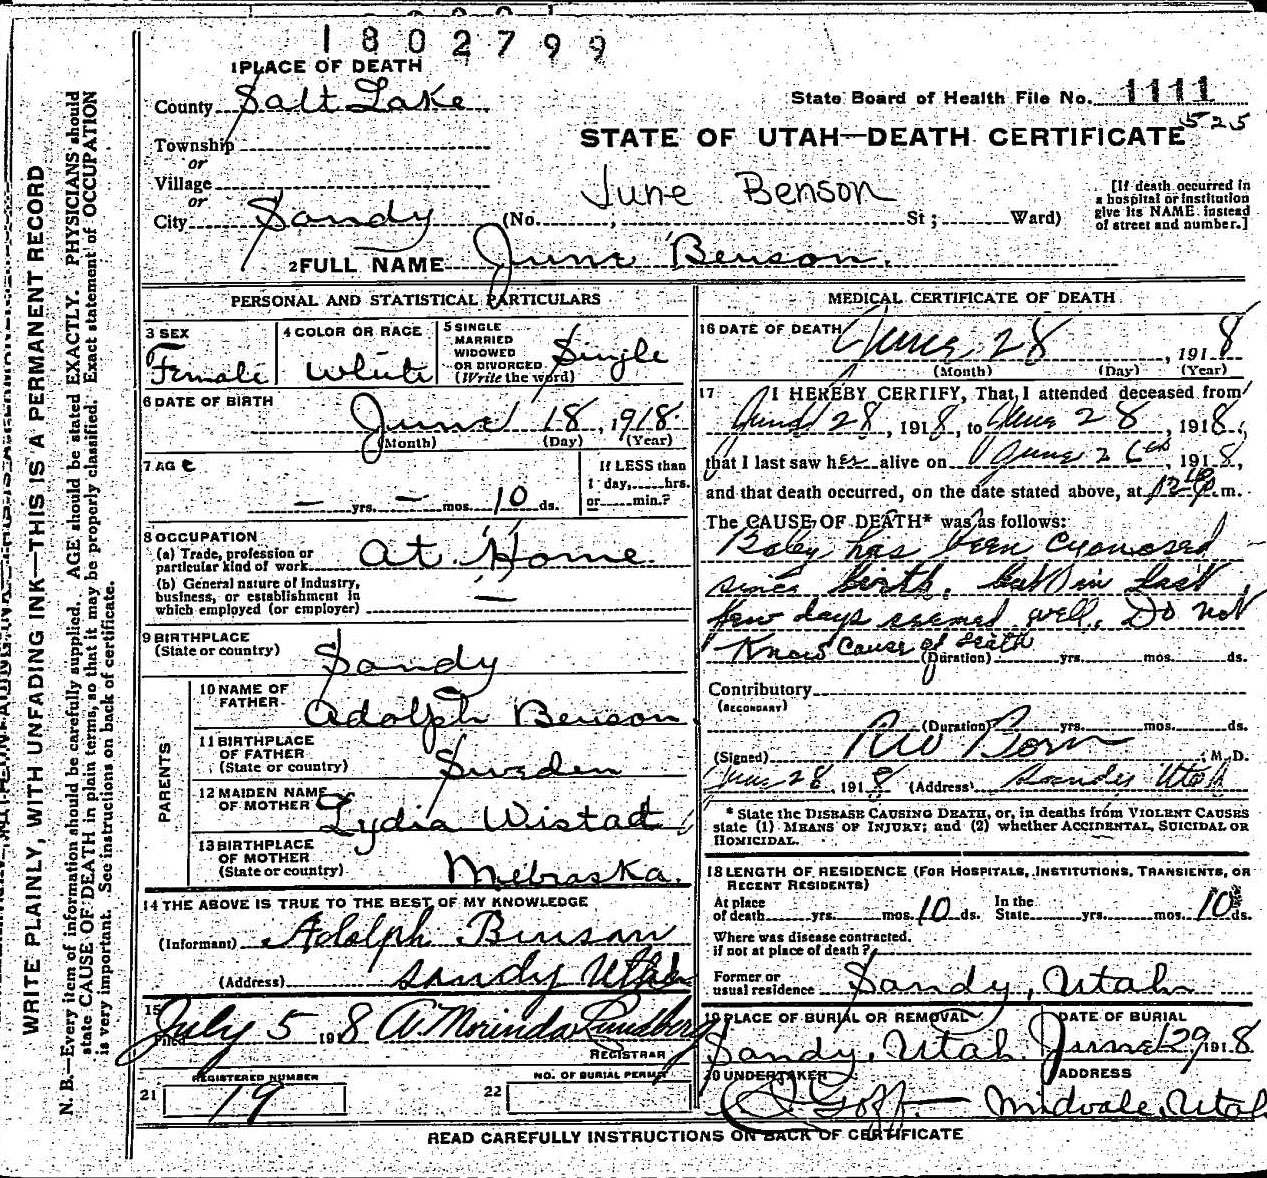 1802799
1 PLACE OF DEATH
County Salt Lake
State Board of Health File No. 1111
Township
STATE OF UTAH—DEATH CERTIFICATE 525
or
Village
or
June Benson
[If death occurred in a hospital or institution give its NAME instead of street and number.]
City Sandy (No. , St; Ward)
2 FULL NAME June Benson.
PERSONAL AND STATISTICAL PARTICULARS
3 SEX Female
4 COLOR OR RACE White
5 SINGLE MARRIED WIDOWED OR DIVORCED (Write the word) Single
6 DATE OF BIRTH
June 18, 1918.
(Month) (Day) (Year)
7 AGE
— yrs. — mos. 10 ds.
If LESS than 1 day, hrs. or min.?
8 OCCUPATION
(a) Trade, profession or particular kind of work At Home.
(b) General nature of industry, business, or establishment in which employed (or employer) —
9 BIRTHPLACE
(State or country) Sandy
PARENTS
10 NAME OF FATHER Adolph Benson
11 BIRTHPLACE OF FATHER (State or country) Sweden
12 MAIDEN NAME OF MOTHER Lydia Wistadt
13 BIRTHPLACE OF MOTHER (State or country) Nebraska.
14 THE ABOVE IS TRUE TO THE BEST OF MY KNOWLEDGE
(Informant) Adolph Benson
(Address) Sandy Utah
15 Filed July 5 1918 A. Morinda Lundberg
REGISTRAR
21 REGISTERED NUMBER 19
22 NO. OF BURIAL PERMIT
MEDICAL CERTIFICATE OF DEATH
16 DATE OF DEATH June 28, 1918
(Month) (Day) (Year)
17 I HEREBY CERTIFY, That I attended deceased from
June 28, 1918, to June 28, 1918,
that I last saw her alive on June 26th, 1918,
and that death occurred, on the date stated above, at m.
The CAUSE OF DEATH* was as follows:
Baby has been cyanosed
since birth, but in last
few days seemed well. Do not
Know Cause of death
(Duration) yrs. mos. ds.
Contributory
(SECONDARY)
(Duration) yrs. mos. ds.
(Signed) Born M.D.
June 28, 1918 (Address) Sandy Utah
* State the DISEASE CAUSING DEATH, or, in deaths from VIOLENT CAUSES
state (1) MEANS OF INJURY; and (2) whether ACCIDENTAL, SUICIDAL OR
HOMICIDAL.
18 LENGTH OF RESIDENCE (FOR HOSPITALS, INSTITUTIONS, TRANSIENTS, OR
RECENT RESIDENTS)
At place of death yrs. mos. 10 ds. In the State yrs. mos. 10 ds.
Where was disease contracted,
if not at place of death?
Former or usual residence Sandy, Utah
19 PLACE OF BURIAL OR REMOVAL DATE OF BURIAL
Sandy, Utah June 29 1918
20 UNDERTAKER ADDRESS
Goff — Midvale, Utah
READ CAREFULLY INSTRUCTIONS ON BACK OF CERTIFICATE
WRITE PLAINLY, WITH UNFADING INK—THIS IS A PERMANENT RECORD
N. B.—Every item of information should be carefully supplied. AGE should be stated EXACTLY. PHYSICIANS should
state CAUSE OF DEATH in plain terms, so that it may be properly classified. Exact statement of OCCUPATION
is very important. See instructions on back of certificate.